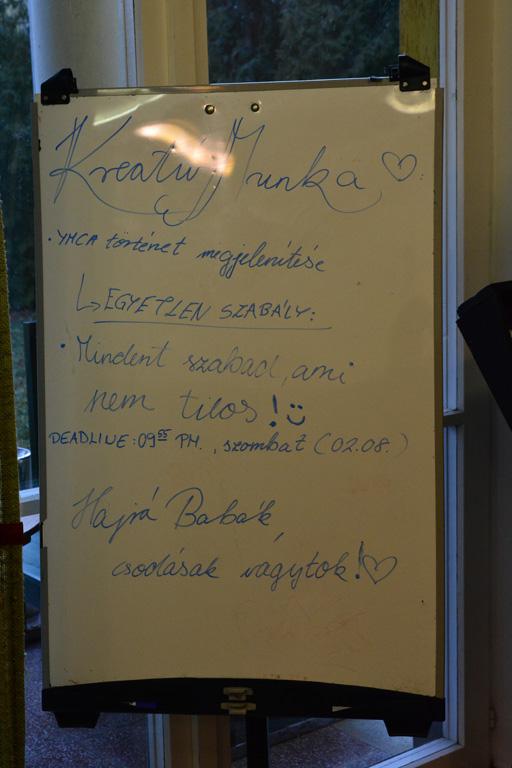 Kreatív Munka ♡
• YMCA történet megjelenítése
↳ EGYETLEN SZABÁLY:
• Mindent szabad, ami
nem tilos! ☺
DEADLINE: 09⁵⁵ PM., szombat (02.08.)
Hajrá Babák,
csodásak vagytok! ♡